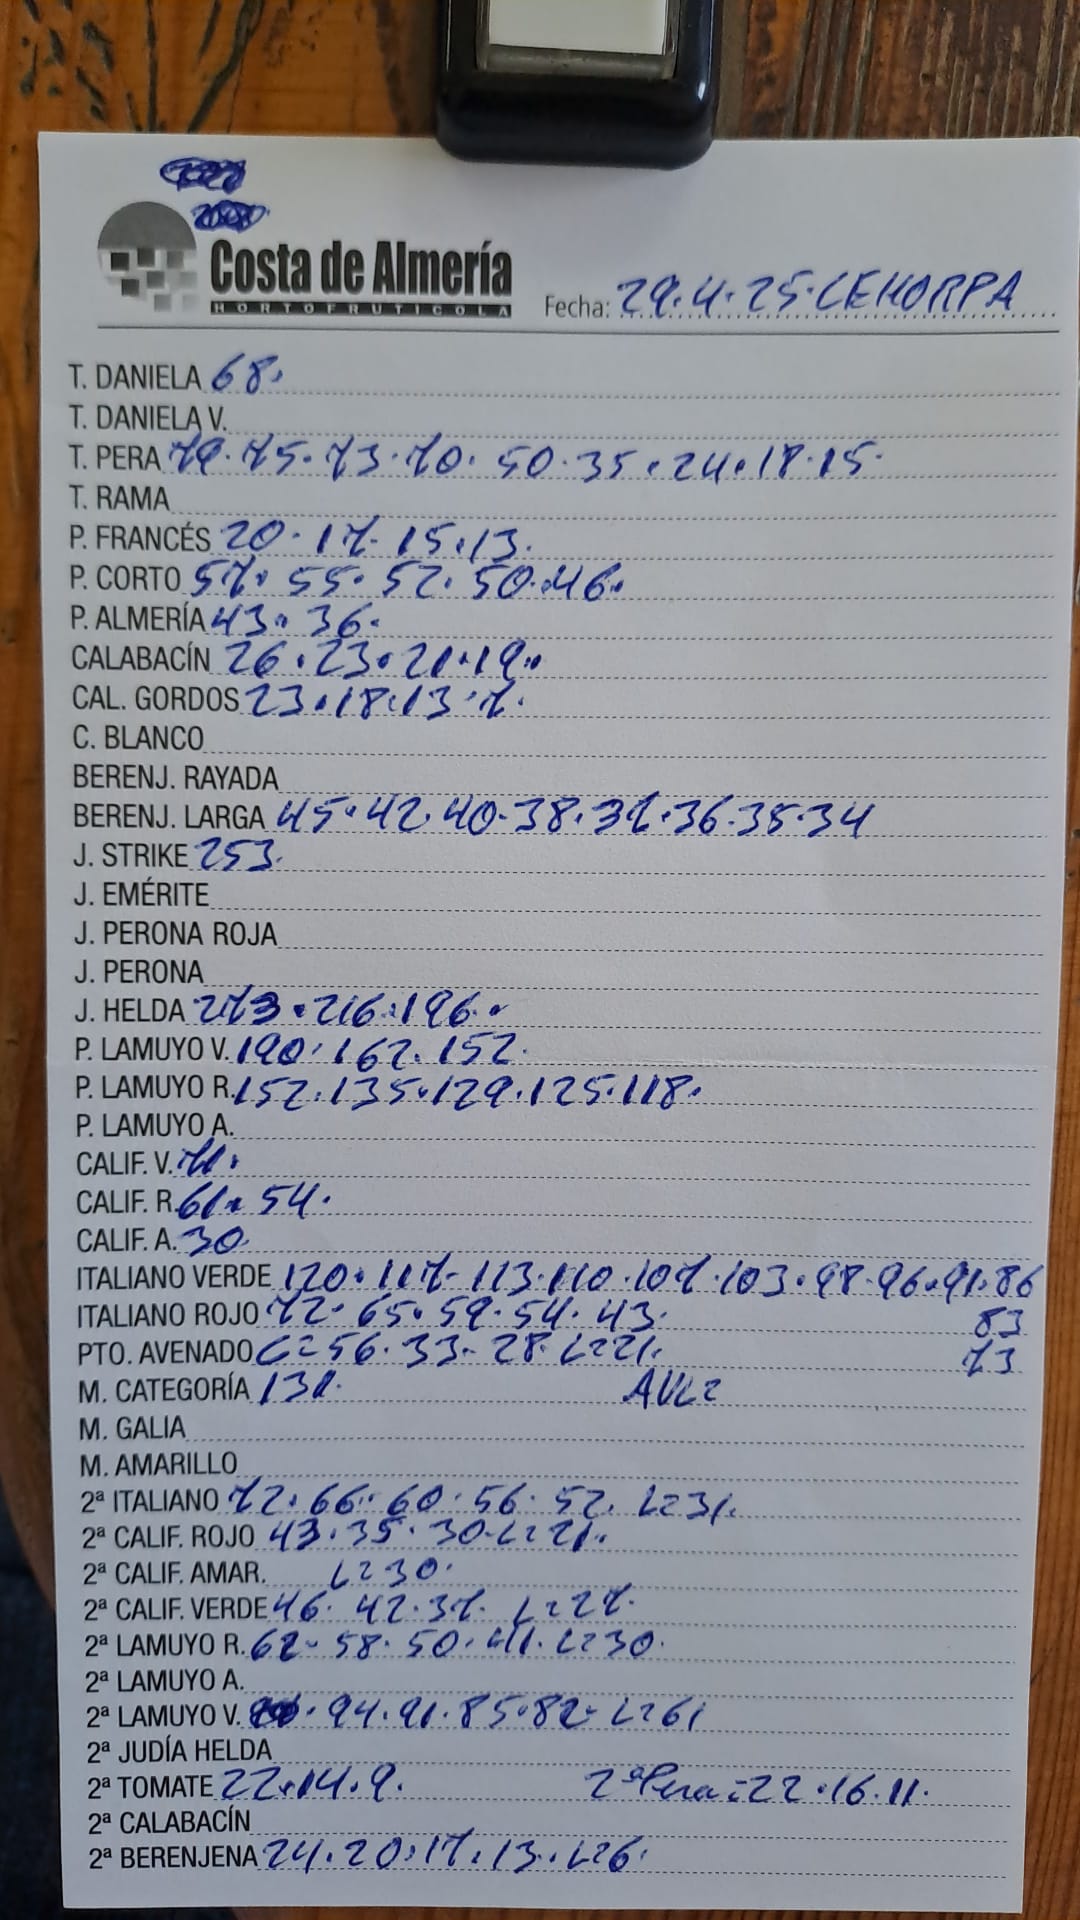 Costa de Almería
HORTOFRUTICOLA
Fecha: 29.4.25.CEHORPA
T. DANIELA 68.
T. DANIELA V.
T. PERA 79.75.73.70.50.35.24.18.15.
T. RAMA
P. FRANCÉS 20.17.15.13.
P. CORTO 57.55.52.50.46.
P. ALMERÍA 43.36.
CALABACÍN 26.23.21.19.
CAL. GORDOS 23.18.13.7.
C. BLANCO
BERENJ. RAYADA
BERENJ. LARGA 45.42.40.38.37.36.35.34
J. STRIKE 253.
J. EMÉRITE
J. PERONA ROJA
J. PERONA
J. HELDA 273.216.196.
P. LAMUYO V. 190.162.152.
P. LAMUYO R. 152.135.129.125.118.
P. LAMUYO A.
CALIF. V. 71.
CALIF. R. 61.54.
CALIF. A. 30
ITALIANO VERDE 120.117.113.110.107.103.98.96.91.86
ITALIANO ROJO 72.65.59.54.43. 83
PTO. AVENADO C=56.33.28.L=21. 73
M. CATEGORÍA 131.
M. GALIA
M. AMARILLO
2ª ITALIANO 72.66.60.56.52. L=31.
2ª CALIF. ROJO 43.35.30.L=21.
2ª CALIF. AMAR. L=30.
2ª CALIF. VERDE 46.42.37. L=27.
2ª LAMUYO R. 62.58.50.41.L=30.
2ª LAMUYO A.
2ª LAMUYO V. 94.91.85.82.L=61
2ª JUDÍA HELDA
2ª TOMATE 22.14.9. 2ªPera=22.16.11.
2ª CALABACÍN
2ª BERENJENA 24.20.17.13.L=6.